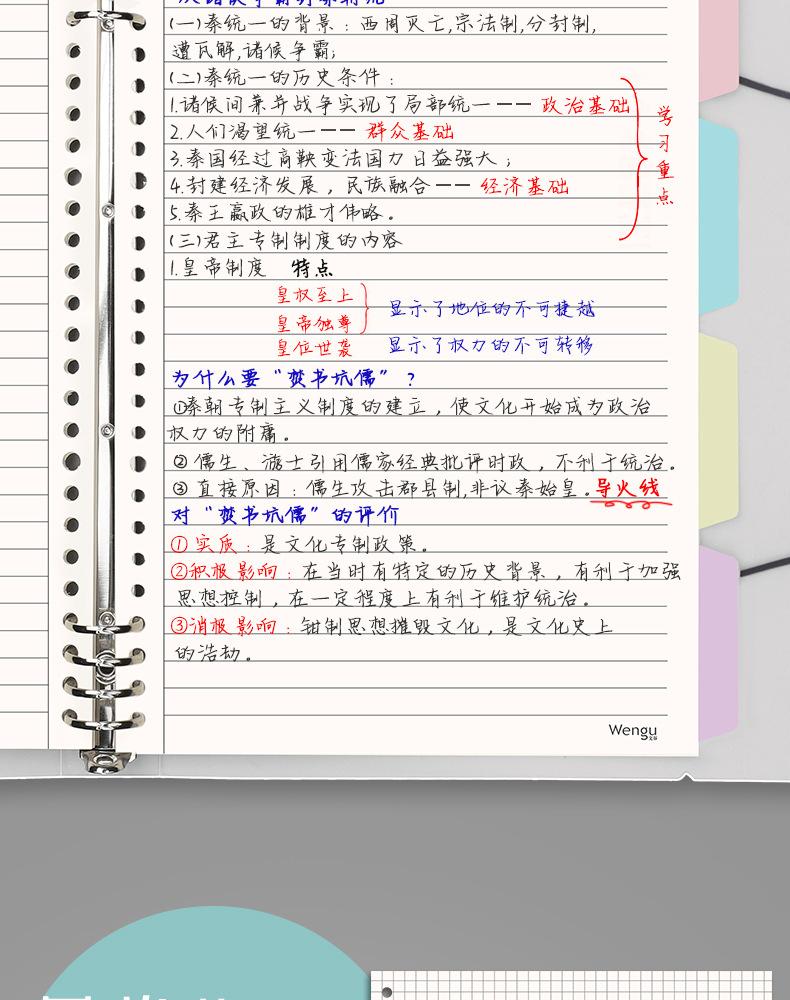 (一)秦统一的背景：西周灭亡,宗法制,分封制,
遭瓦解,诸侯争霸;
(二)秦统一的历史条件：
1.诸侯间兼并战争实现了局部统一——政治基础
2.人们渴望统一——群众基础
3.秦国经过商鞅变法国力日益强大；
4.封建经济发展，民族融合——经济基础
5.秦王嬴政的雄才伟略。
学习重点
(三)君主专制制度的内容
1.皇帝制度 特点
皇权至上
皇帝独尊
显示了地位的不可捷越
皇位世袭 显示了权力的不可转移
为什么要“焚书坑儒”？
①秦朝专制主义制度的建立，使文化开始成为政治
权力的附庸。
② 儒生、游士引用儒家经典批评时政，不利于统治。
③ 直接原因：儒生攻击郡县制,非议秦始皇。导火线
对“焚书坑儒”的评价
① 实质：是文化专制政策。
②积极影响：在当时有特定的历史背景，有利于加强
思想控制，在一定程度上有利于维护统治。
③消极影响：钳制思想摧毁文化，是文化史上
的浩劫。
Wengu